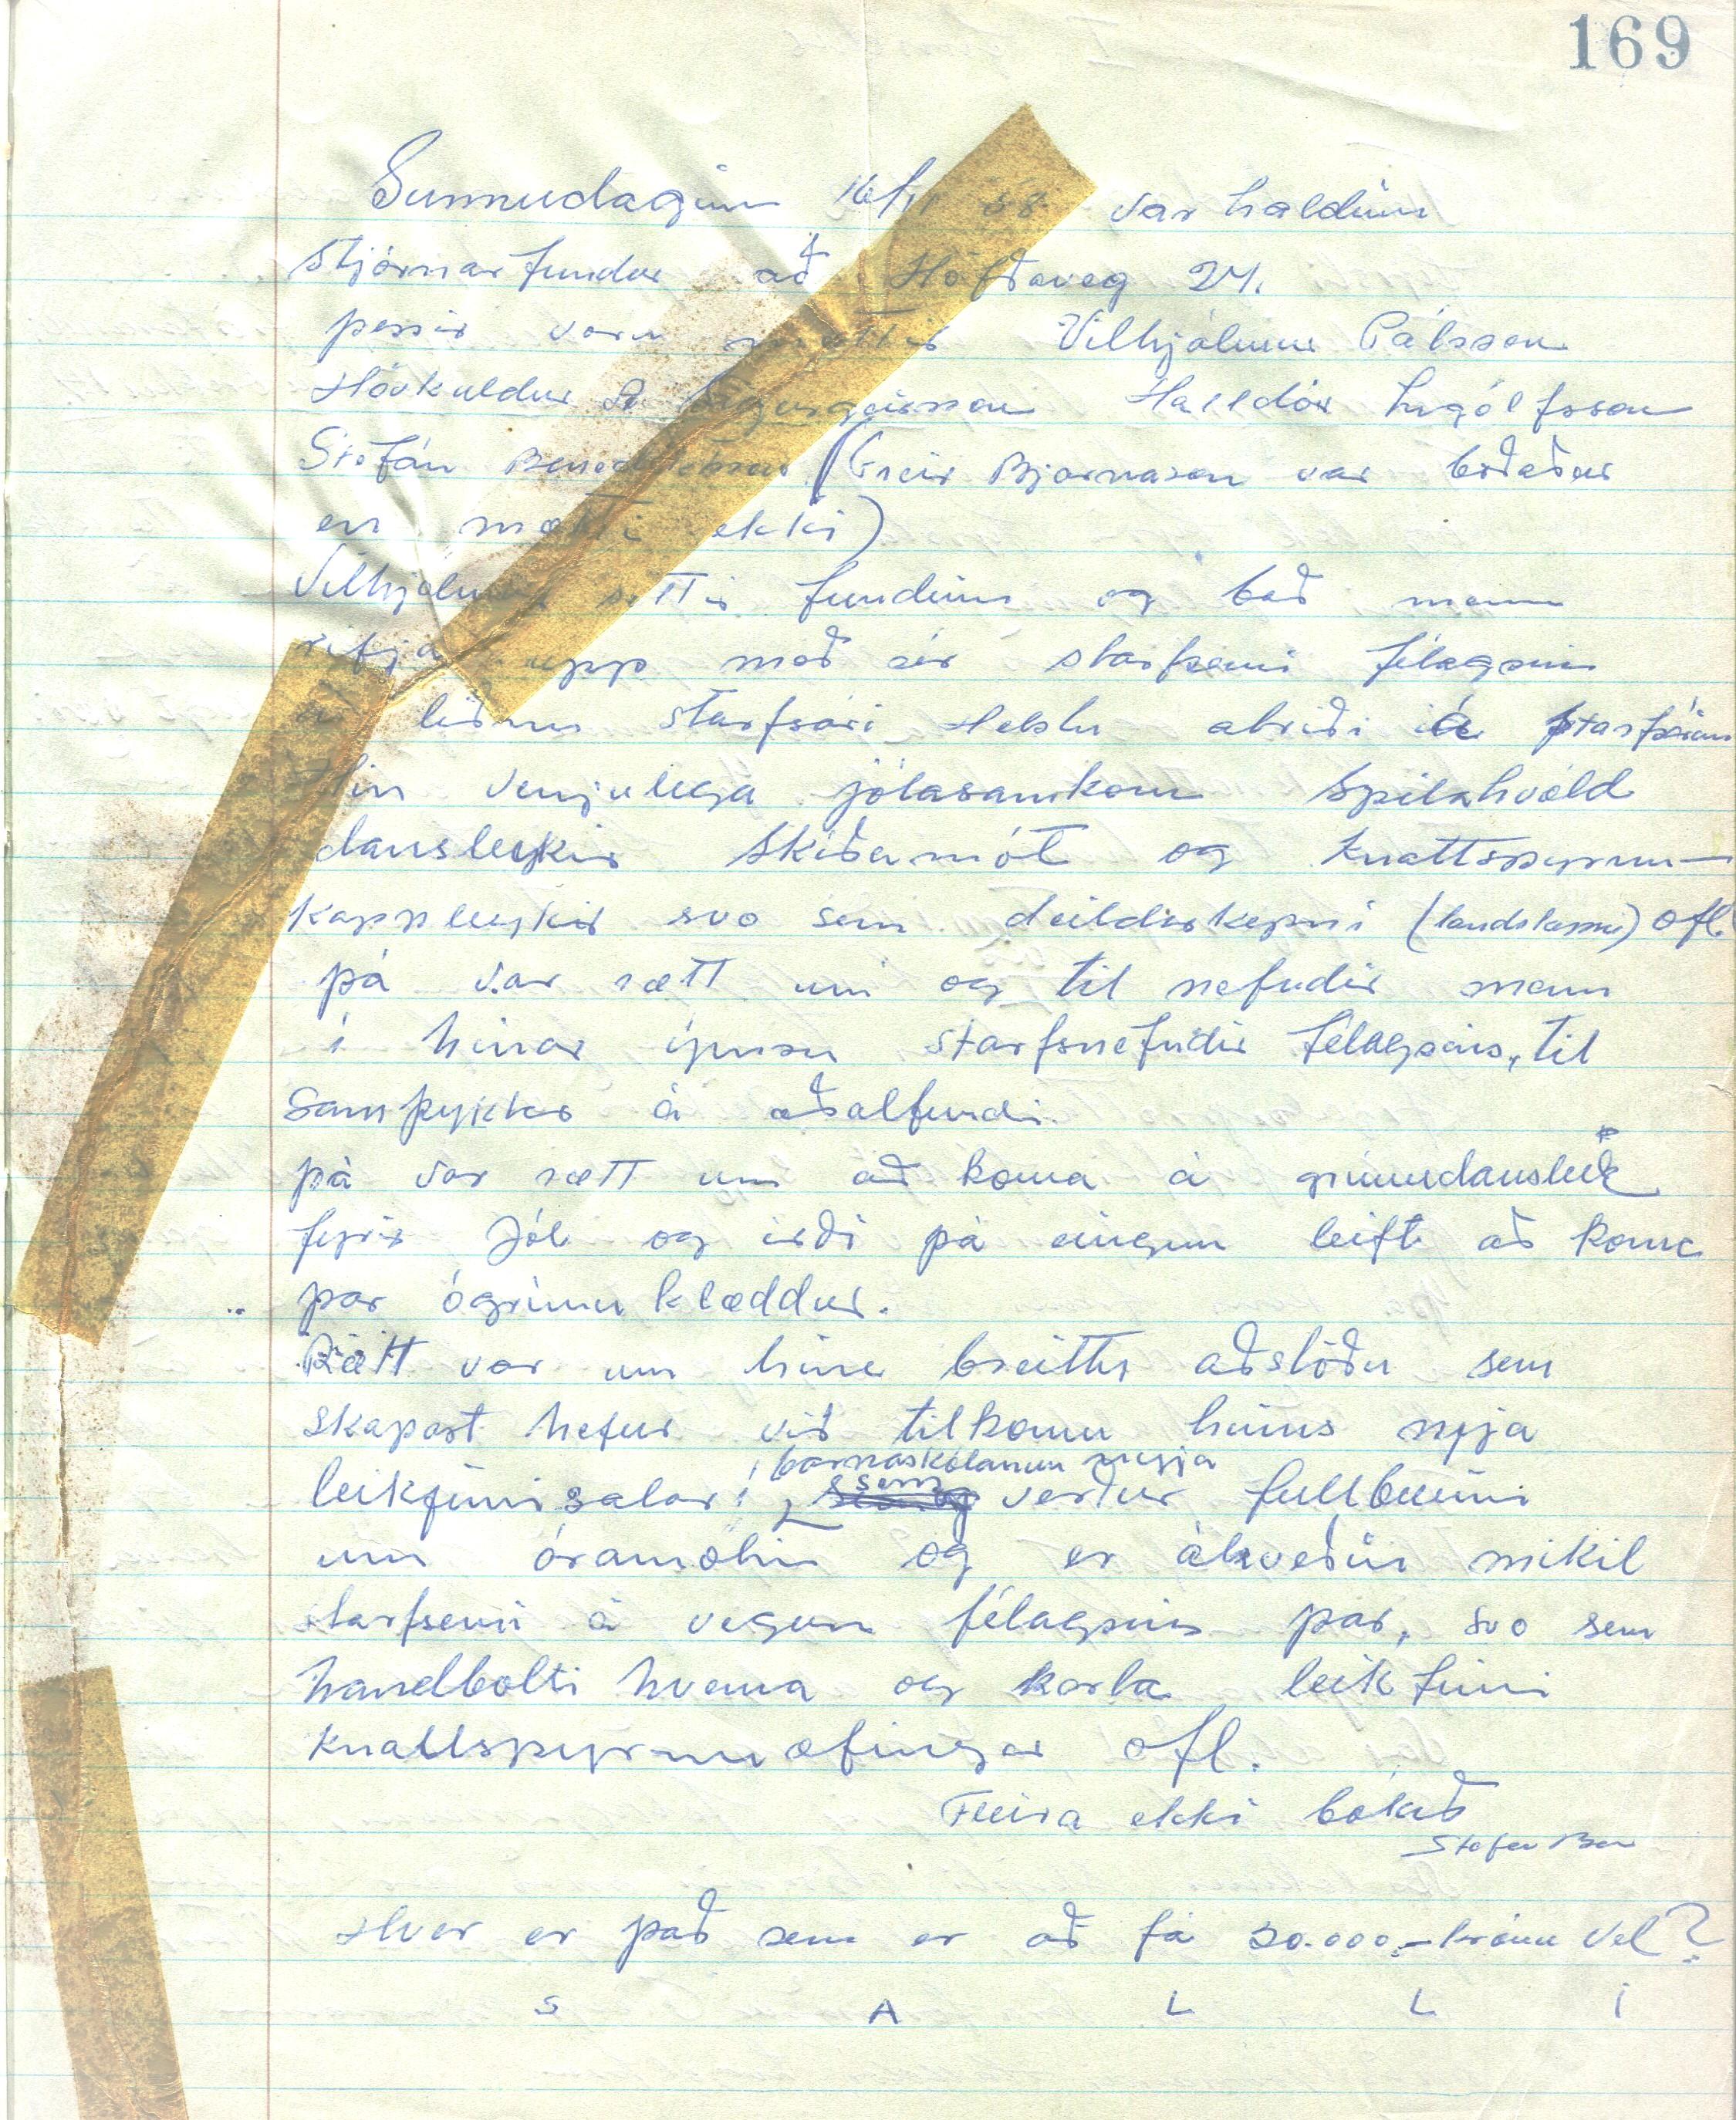 169
Sunnudaginn 16/11 58 var haldinn
stjórnarfundur að Höfðaveg 24.
þessir voru mættir Vilhjálmur Pálsson
Höskuldur Sigurgeirsson Halldór Ingólfsson
Stefán Benediktsson (Geir Bjarnason var boðaður
en mætti ekki)
Vilhjálmur setti fundinn og bað menn
rifja upp með sér starfsemi félagsins
á liðnu starfsári Helstu atriði á starfsárinu
Hin venjulega jólasamkoma Spilakvöld
dansleykir Skíðamót og Knattspyrnu-
kappleykir svo sem deildarkepni (landskepni) ofl.
þá var rætt um og til nefndir menn
í hinar ýmsu starfsnefndir félagsins, til
samþykktar á aðalfundi.
þá var rætt um að koma á grímudansleik
fyrir Jól og irði þá eingum leift að koma
þar ógrímuklæddur.
Rætt var um hina breittu aðstöðu sem
skapast hefur við tilkomu hins nyja
í barnaskólanum nyja
leikfimisalar, sem verður fullbúinn
um áramótin og er ákveðin mikil
starfsemi á vegum félagsins þar, svo sem
handbolti kvenna og karla leikfimi
Knattspyrnuæfingar ofl.
Fleira ekki bókað
Stefán Ben
Hver er það sem er að fá 30.000,- krónu vel?
S A L L I